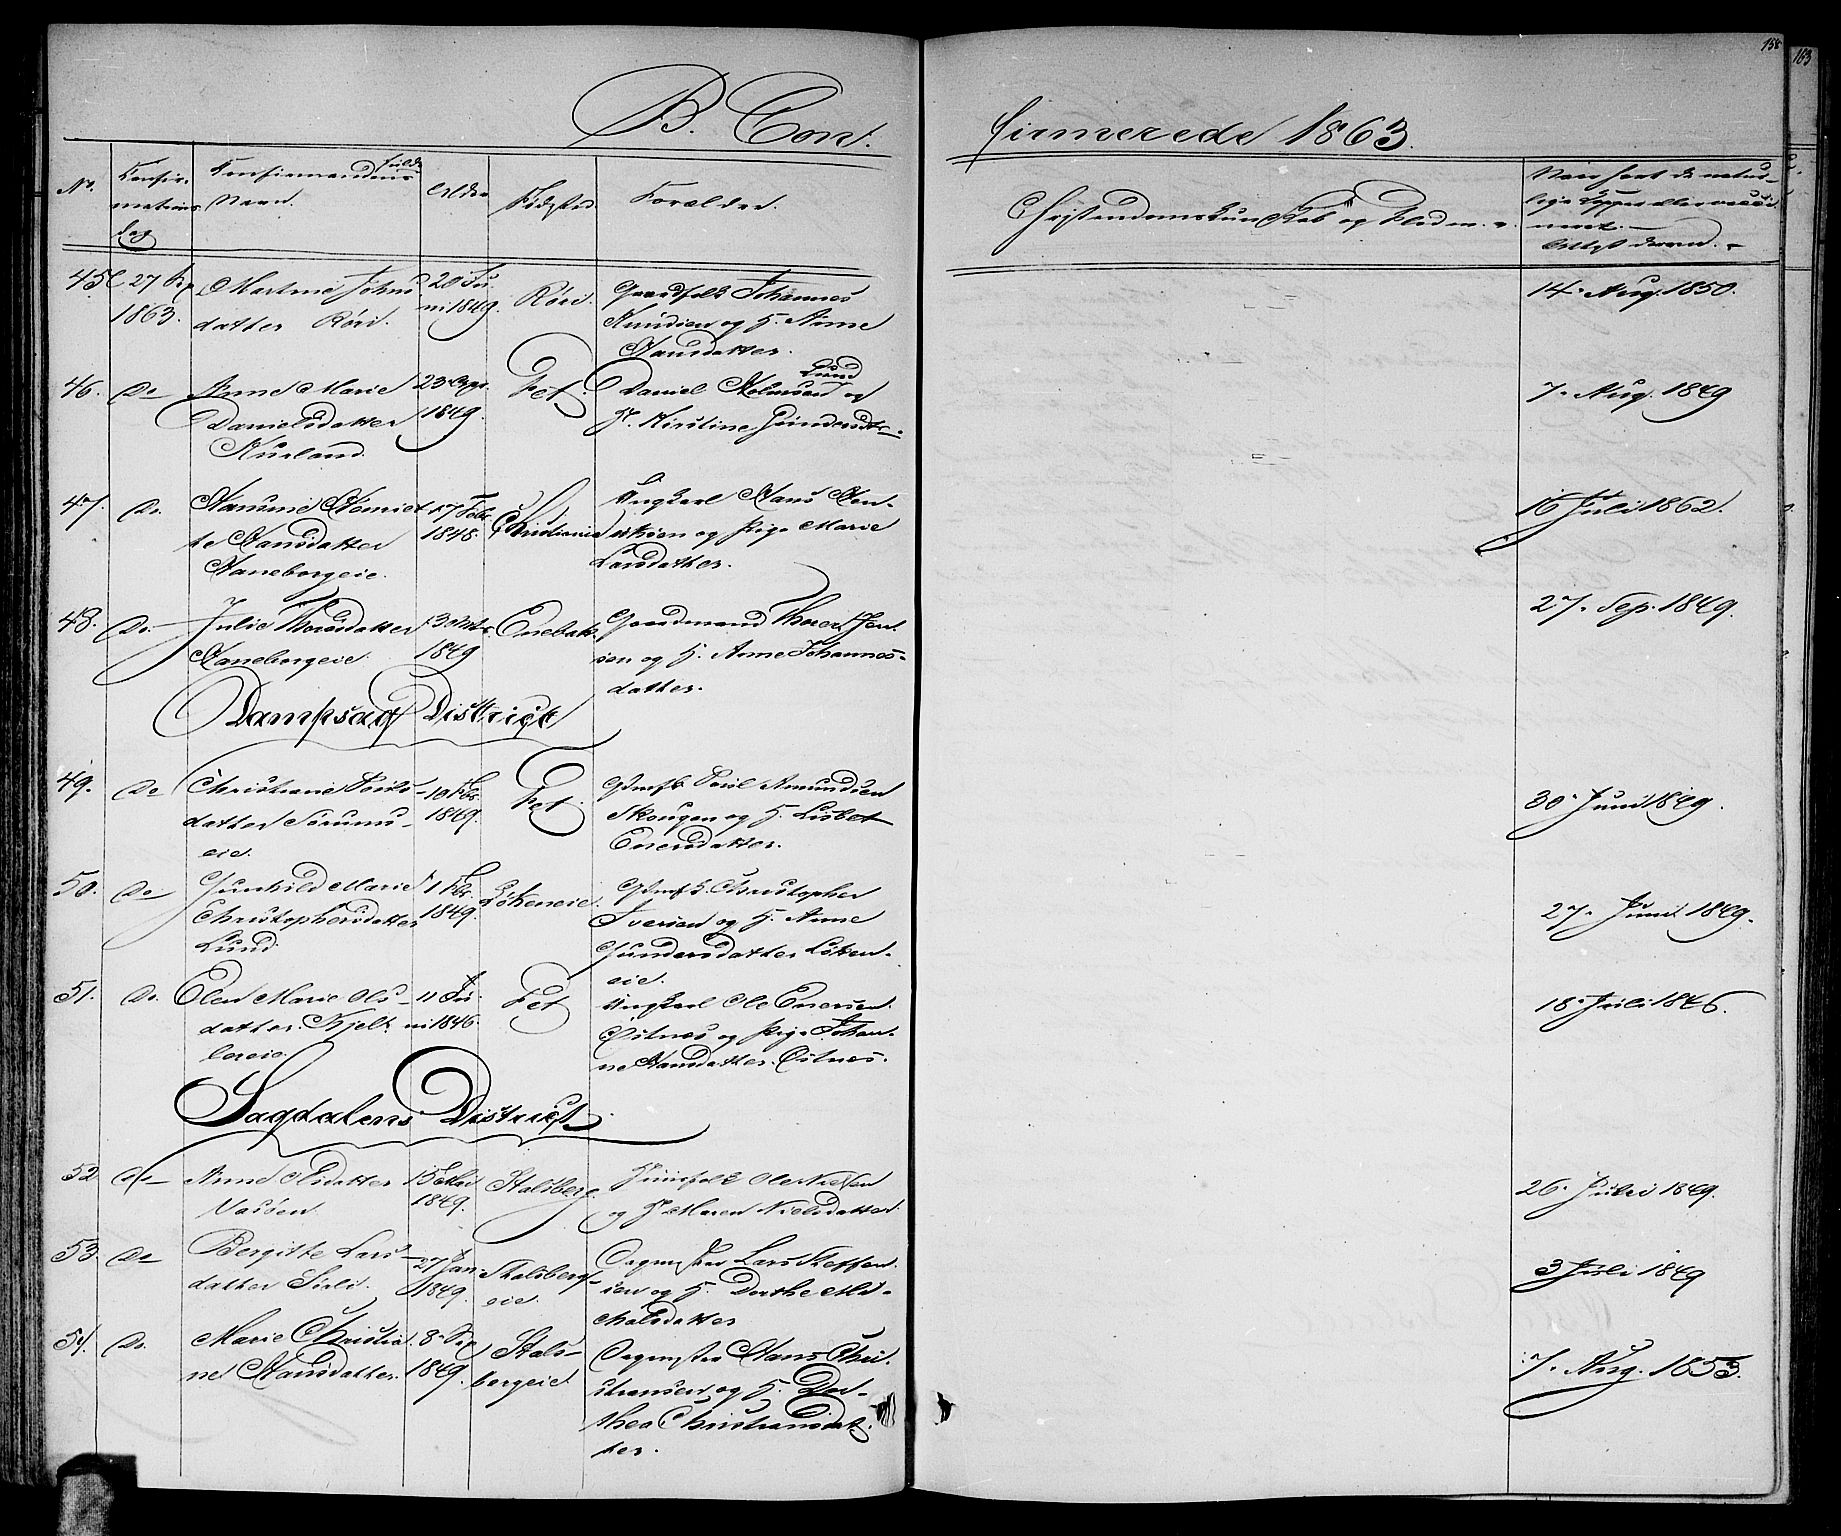 158
163
B. Con.
firmerede 1863.
No.
Konfir-
mations
dag
Konfirmandens fulde
Navn.
Alder
Fødested
Forældre.
Christendomskundskab og Flid m. v.
Naar havt de natur-
lige Kopper eller vacci-
neret.
45.
27 Sep
1863.
Martine Johns
datter Röri.
20 Ju
ni 1849.
Röri.
Gaardfolk Johannes
Knudsen og H. Anne
Hansdatter.
14. Aug. 1850.
46.
Do
Anne Marie
Danielsdatter
Kurland.
23
1849.
Fet.
Daniel Lund og
H. Kirstine Gundersdtr
7. Aug. 1849
47.
Do.
Hanne Henriet
te Hansdatter
Haneborgeie.
17 Febr.
1848.
Christiania
Ungkarl Hans Hen-
riksen og Pige Marie
Larsdatter.
16 Juli 1862.
48.
Do.
Julie Thorsdatter
Haneborgeie.
1849
Enebak.
Gaardmand Thoer Jen
sen og H. Anne Johannes-
datter.
27. Sep. 1849.
Dampsag District
49.
Do
Christiane Pouls
datter Sörums-
eie.
10 Febr.
1849.
Fet
Poul Amundsen
Skougen og H. Lisbet
Enersdatter.
30. Juni 1849.
50.
Do
Gunhild Marie
Christophersdatter
Lund.
1 Febr.
1849.
Lökeneie.
Christopher
Iversen og H. Anne
Gundersdatter Löken-
eie.
27. Juni 1849.
51.
Do.
Elen Marie Ols-
datter Kjelt
lereie.
11 Ju-
ni 1846.
Fet
Ungkarl Ole Enersen
Östnes og Pige Johan-
ne Hansdatter Östnes.
18. Juli 1846.
Sagdalens District
52
Do
Anne Olsdatter
Vasöen.
15 Mai
1849.
Stalsberg.
Huusfolk Ole Nielsen
og H. Maren Nielsdatter.
26. Juli 1849.
53.
Do
Bergitte Lars-
datter
27 Jan
1849.
Stalsberg-
eie.
Lars Steffen
sen og H. Dorthe Mi-
chalsdatter
3 Juli 1849
54.
Do.
Marie Christia
ne Hansdatter.
8. Sep
1849.
Stals-
bergeie.
Hans Chri-
stiansen og H. Dor-
thea Christiansdat-
ter.
7. Aug. 1853.